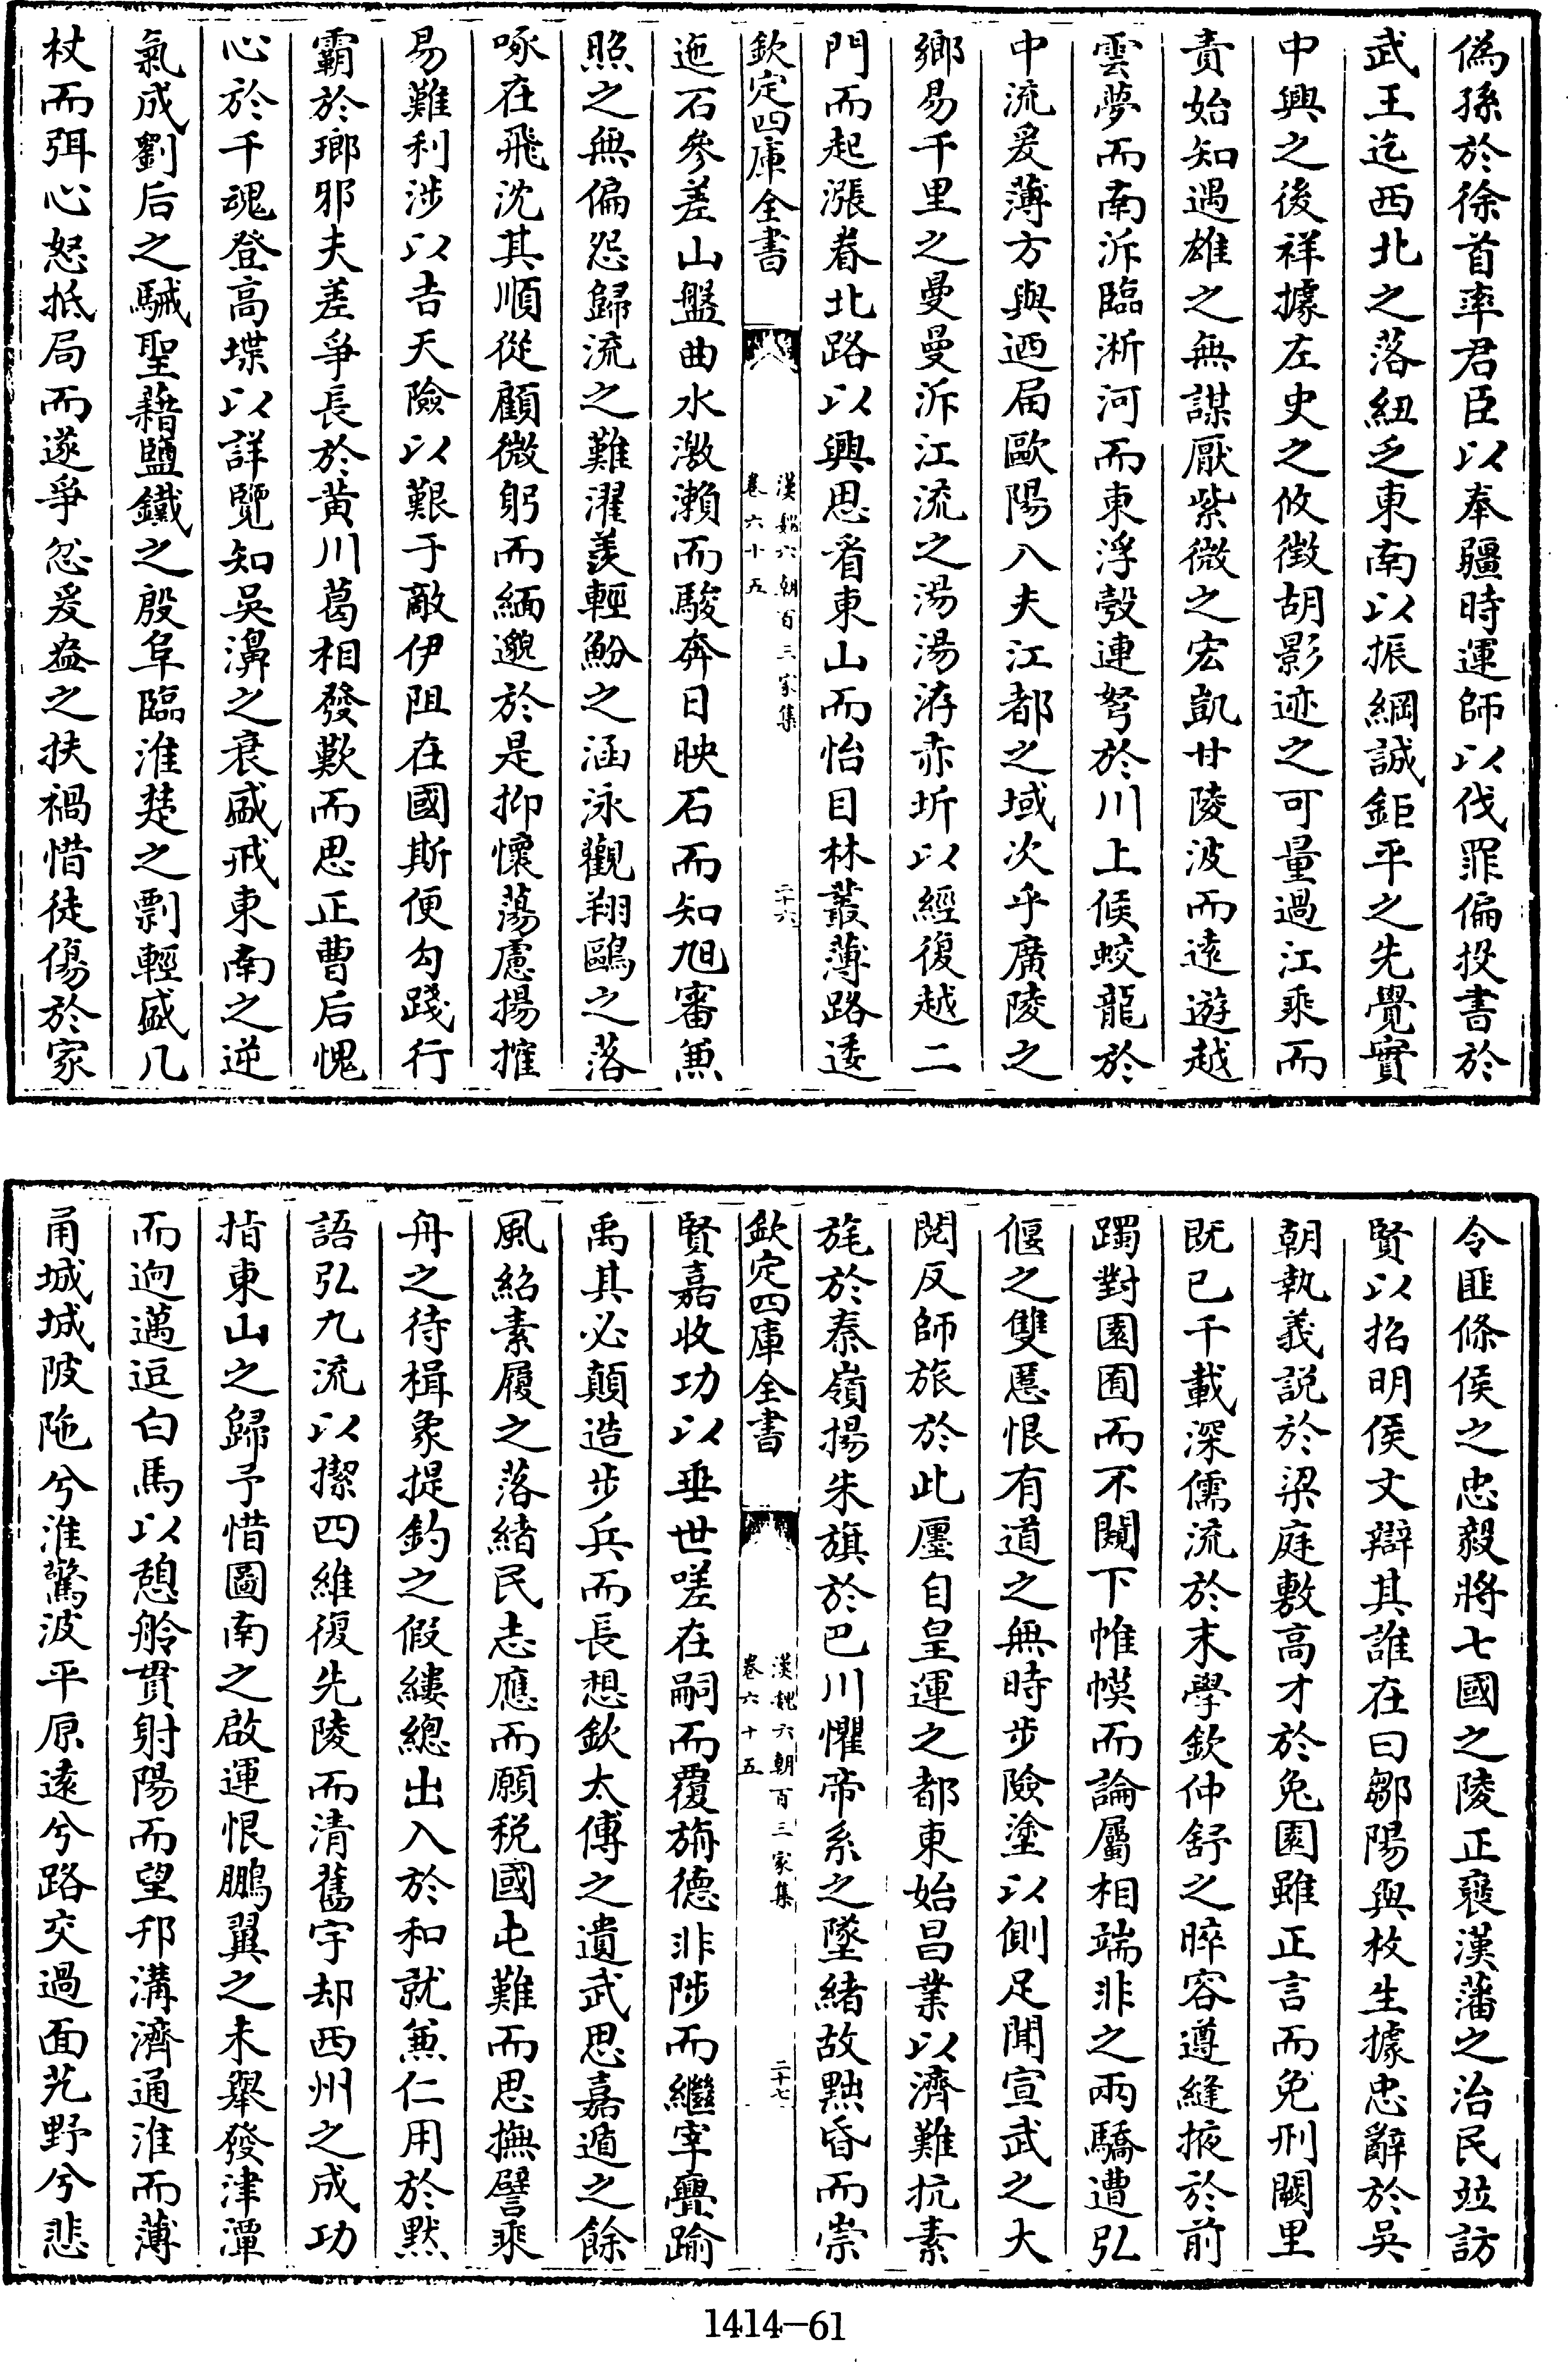 偽孫於徐首率君臣以奉疆時運師以伐罪偏投書於
武王迄西北之落紐乏東南以振綱誠鉅平之先覺實
中興之後祥據左史之攸徵胡影迹之可量過江乘而
責始知遇雄之無謀厭紫微之宏凱甘陵波而遠遊越
雲夢而南泝臨淅河而東浮彀連弩於川上候蛟龍於
中流爰薄方與迺屆歐陽入夫江都之域次乎廣陵之
鄉易千里之曼曼泝江流之湯湯洊赤圻以經復越二
門而起漲眷北路以興思看東山而怡目林叢薄路逶
欽定四庫全書
漢魏六朝百三家集
卷六十五
二十六
迤石參差山盤曲水激瀨而駿奔日映石而知旭審兼
照之無偏怨歸流之難濯羨輕魵之涵泳觀翔鷗之落
啄在飛沈其順從顧微躬而緬邈於是抑懷蕩慮揚搉
易難利涉以吉天險以艱于敵伊阻在國斯便勾踐行
霸於瑯邪夫差爭長於黃川葛相發歎而思正曹后愧
心於千魂登高堞以詳覽知吳濞之衰盛戒東南之逆
氣成劉后之駴聖藉鹽鐵之殷阜臨淮楚之剽輕盛几
杖而弭心怒抵局而遂爭忿爰盎之扶禍惜徒傷於家
令匪條侯之忠毅將七國之陵正裦漢藩之治民竝訪
賢以招明侯文辯其誰在曰鄒陽與枚生據忠辭於吳
朝執義說於梁庭敷高才於兔園雖正言而免刑闕里
既已千載深儒流於末學欽仲舒之睟容遵縫掖於前
躅對園囿而不闚下帷幙而論屬相端非之兩驕遭弘
偃之雙慝恨有道之無時步險塗以側足聞宣武之大
閱反師旅於此廛自皇運之都東始昌業以濟難抗素
旄於秦嶺揚朱旗於巴川懼帝系之墜緒故黜昏而崇
欽定四庫全書
漢魏六朝百三家集
卷六十五
二十七
賢嘉收功以垂世嗟在嗣而覆旃德非陟而繼宰釁踰
禹其必顛造步兵而長想欽太傅之遺武思嘉遁之餘
風紹素履之落緒民志應而願税國屯難而思撫譬乘
舟之待楫象提釣之假縷總出入於和就兼仁用於默
語弘九流以㩥四維復先陵而清舊宇却西州之成功
指東山之歸予惜圖南之啟運恨鵬翼之未舉發津潭
而迥邁逗白馬以憩舲貫射陽而望邗溝濟通淮而薄
甬城城陂陁兮淮驚波平原遠兮路交過面艽野兮悲
1414-61